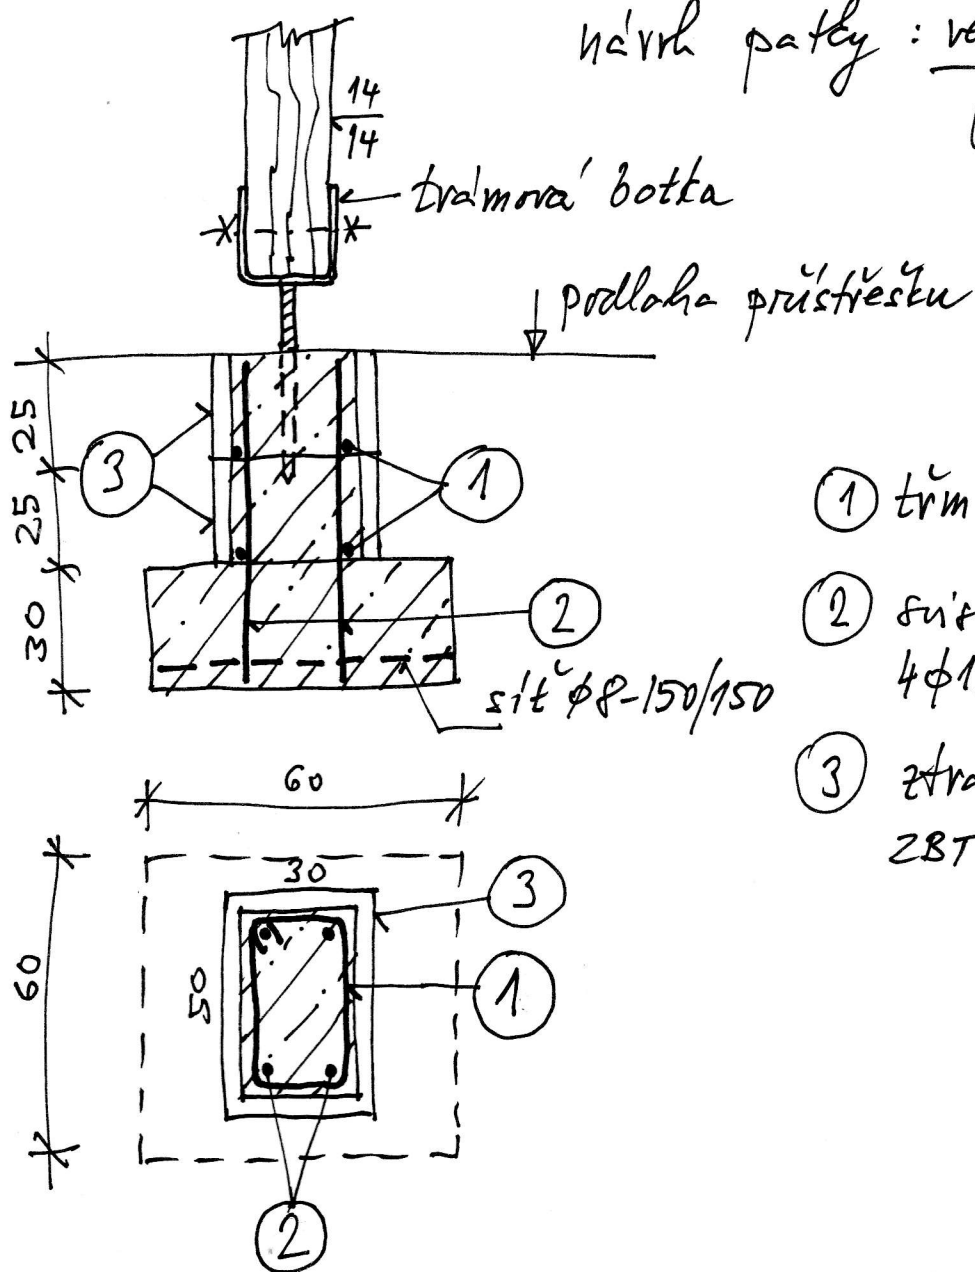 návrh patky :
14
14
trámová botka
podlaha přístřešku
25
25
30
3
1
2
síť ϕ8-150/150
1 třm
2 svis
4ϕ1
3 ztra
ZBT
60
60
30
50
3
1
2